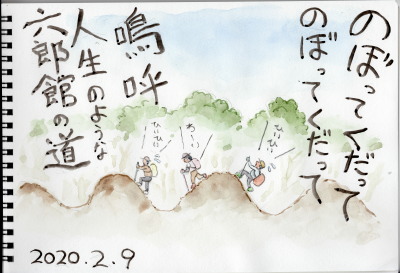 のぼってくだって
のぼってくだって
嗚呼
人生のような
六郎館の道
ひいひい
わーい
ひいひい
2020.2.9